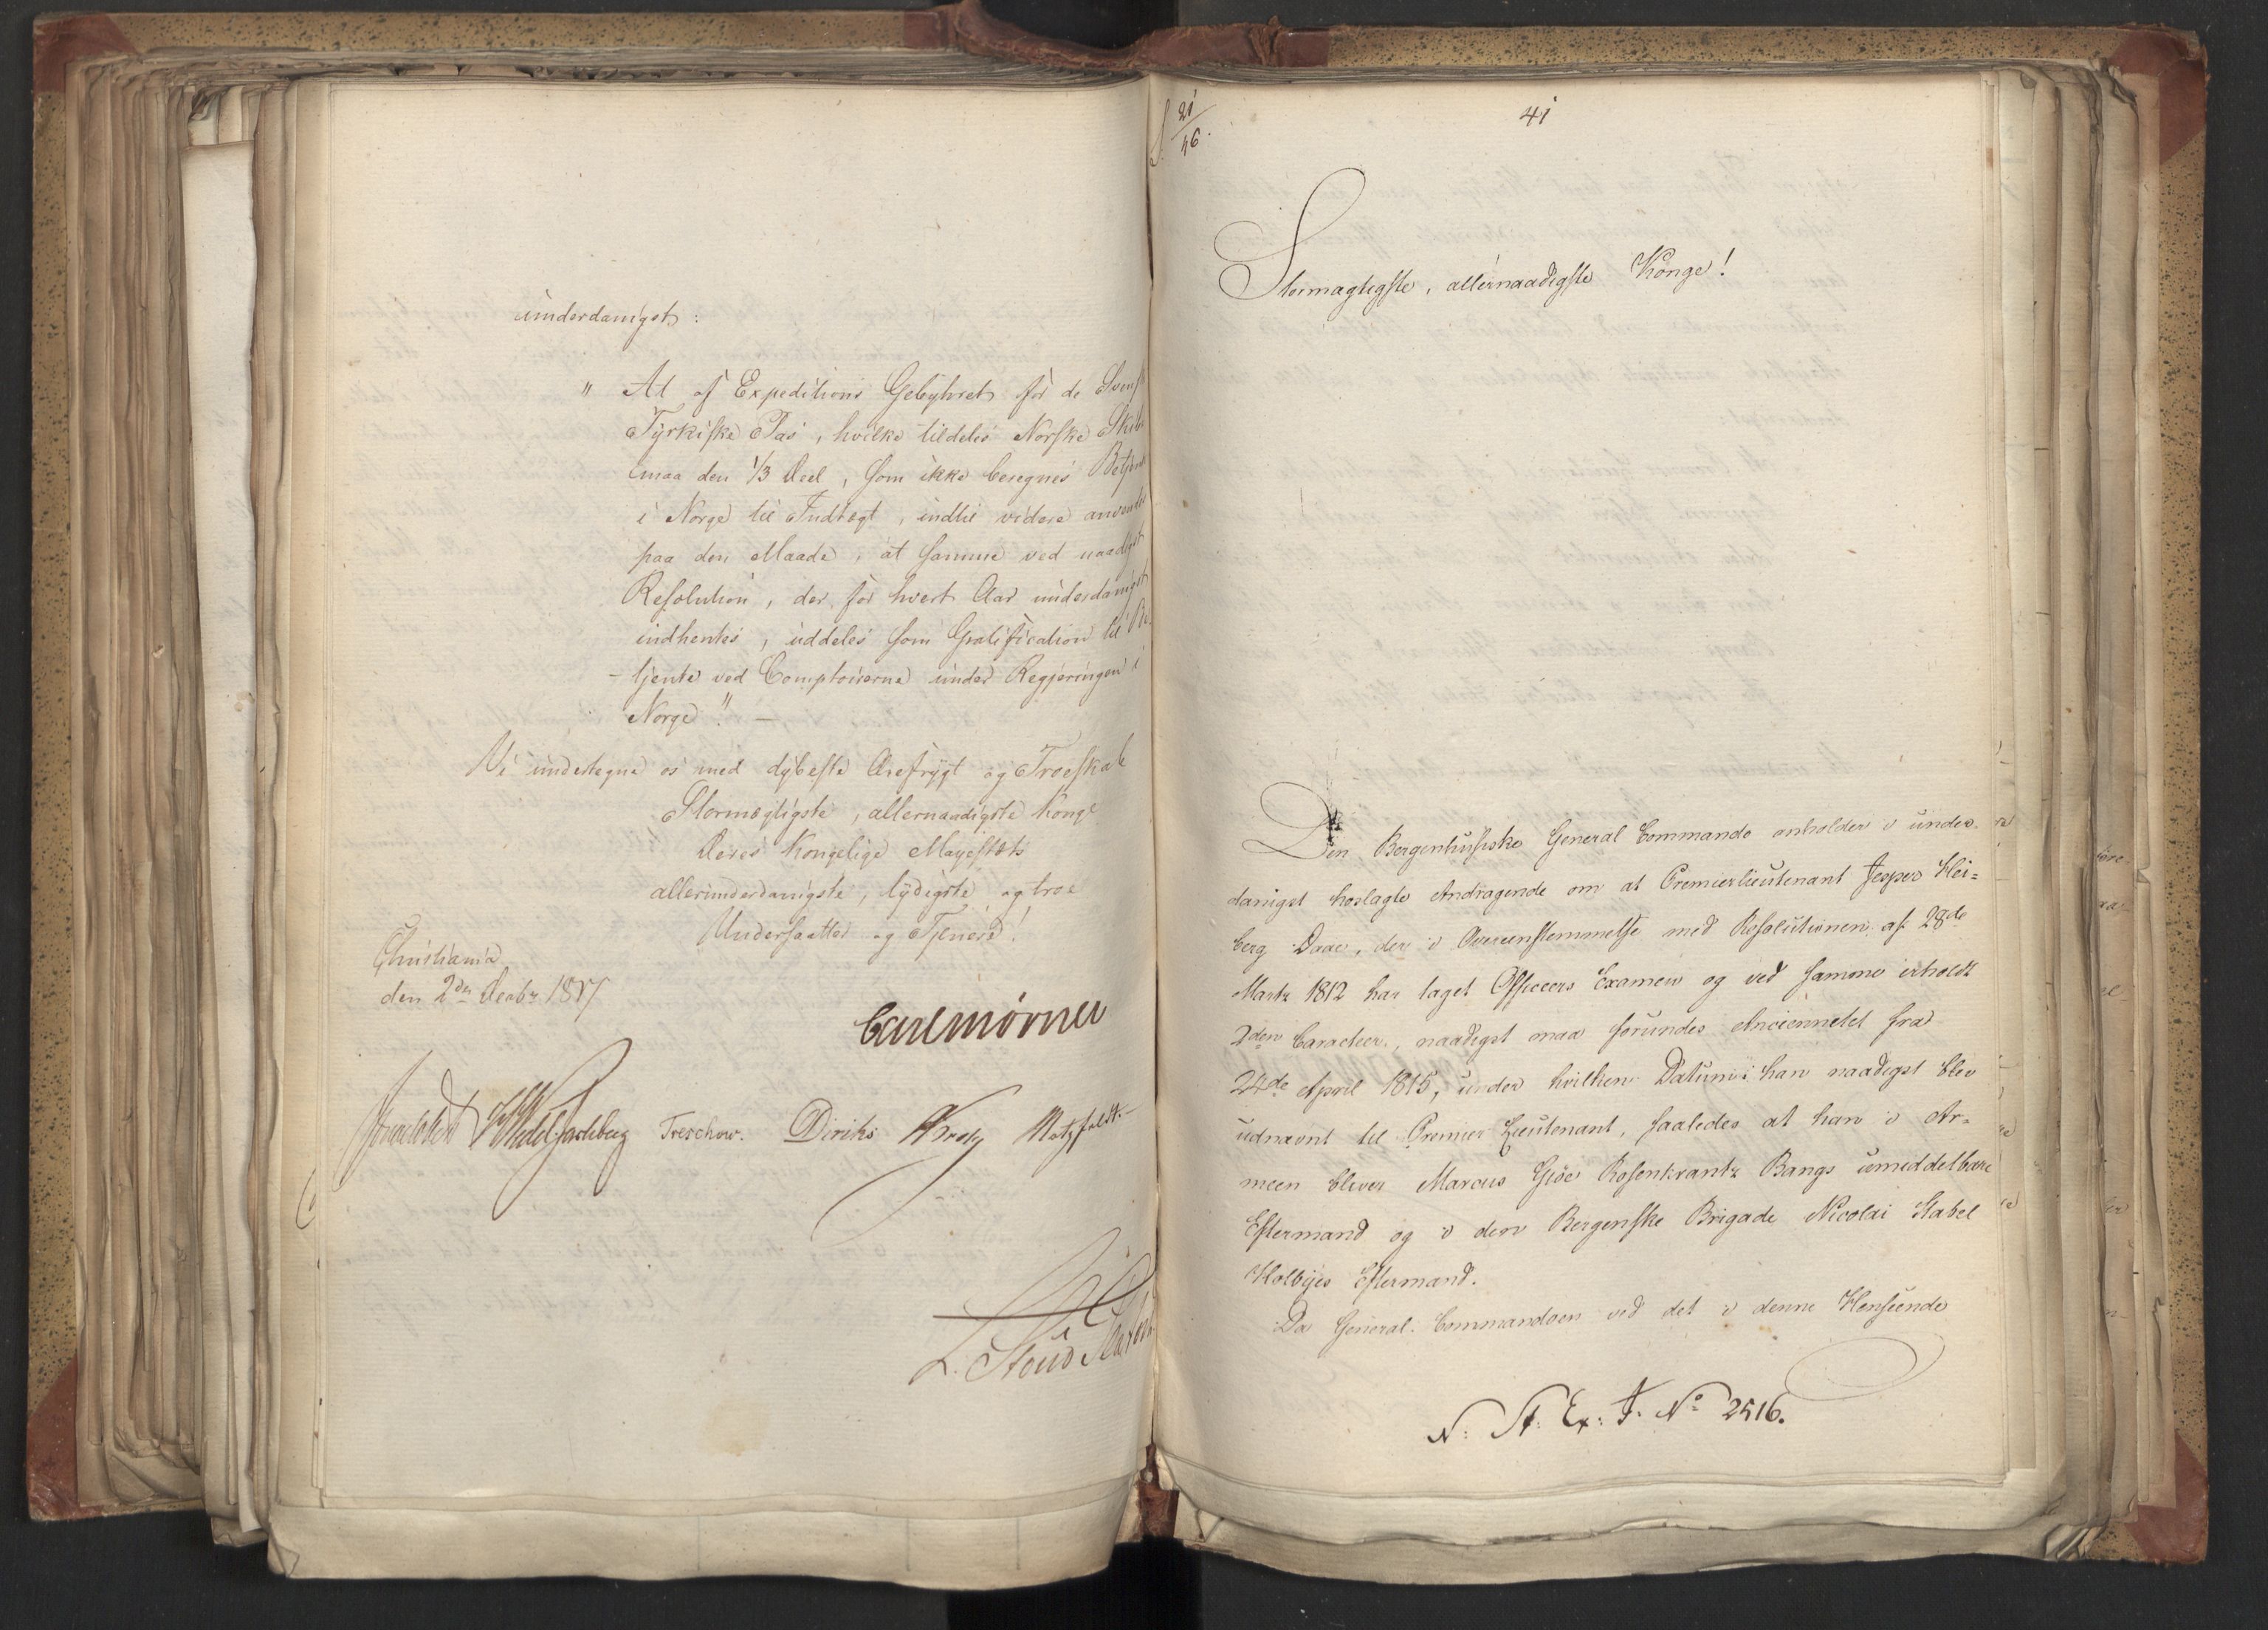 underdanigst:
" At af Expeditions Gebyhret for de Svensk
Tyrkiske Pas, hvilke tildeles Norske Skibe
maa den 1/3 Deel, som ikke beregnes Betjente
i Norge til Indtægt, indtil videre anvendes
paa den Maade, at samme ved naadigst
Resolution, der for hvert Aar underdanigst
indhentes, uddeles som Gratification til Be-
-tjente ved Comptoirerne under Regjeringen i
Norge". —
Vi undertegne os med dybeste Ærefrygt og Troeskab
Stormægtigste, allernaadigste Konge
Deres Kongelige Majestæts
allerunderdanigste, lydigste og troe
Undersaatter og Tjenere!
Christiania
den 2den Decbr 1817
Carl Mörner
Sommerhielm Wedel Jarlsberg Treschow. Diriks Krog Motzfeldt.
L. Stoud Platou
21/46.
41
Stormægtigste, allernaadigste Konge!
Den Bergenhusiske General Commando anholder i under-
danigst hoslagte Andragende om at Premierlieutenant Jesper Hei=
berg Daae, der i Overeensstemmelse med Resolutionen af 28de
Marts 1812 har taget Officeers Examen og ved samme erholdt
2den Caracteer, naadigst maa forundes Anciennetet fra
24de April 1815, under hvilken Datum han naadigst blev
udnævnt til Premier Lieutenant, saaledes at han i Ar-
meen bliver Marcus Giøe Rosenkrantz Bangs umiddelbare
Eftermand og i den Bergenske Brigade Nicolai Stabel
Holbyes Eftermand.
Da General Commandoen ved det i denne Henseende
N. St. Ex: J. No 2516.